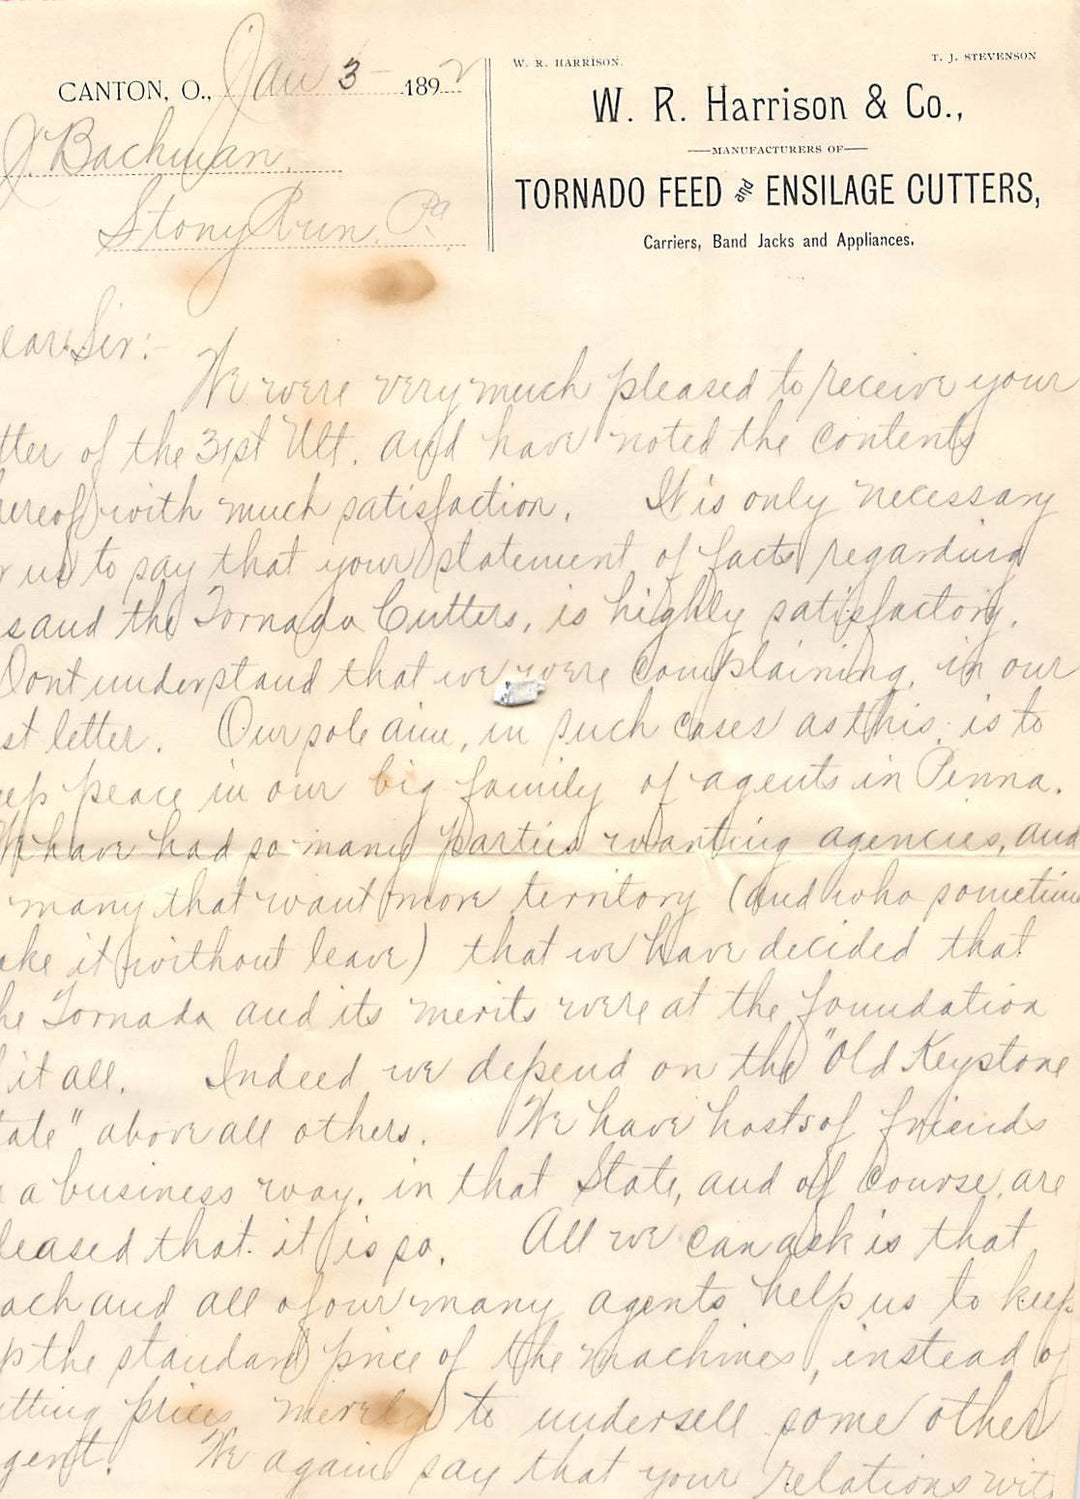 W. R. HARRISON. T. J. STEVENSON
CANTON, O., Jan 3 1892
W. R. Harrison & Co.,
MANUFACTURERS OF
TORNADO FEED and ENSILAGE CUTTERS,
Carriers, Band Jacks and Appliances.
J. Bachman.
Stony Run. Pa
ear Sir:-
We were very much pleased to receive your
tter of the 31st Ult. and have noted the contents
hereof with much satisfaction. It is only necessary
r us to say that your statement of facts regarding
s and the Tornado Cutters, is highly satisfactory.
Dont understand that we were complaining, in our
st letter. Our sole aim, in such cases as this, is to
eep peace in our big family of agents in Penna.
We have had so many parties wanting agencies, and
many that want more territory (and who sometim
ake it without leave) that we have decided that
he Tornado and its merits were at the foundation
it all. Indeed we depend on the "Old Keystone
tate" above all others. We have hosts of friends
a business way, in that State, and of course, are
leased that it is so. All we can ask is that
ach and all of our many agents help us to keep
p the standard price of the machines, instead of
tting prices merely to undersell some other
gent. We again say that your relations wit